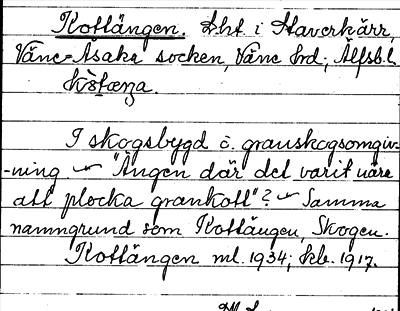 Kottängen. Lht. i Haverkärr,
Väne-Åsaka socken, Väne hd; Älfsb. l.
I skogsbygd o. granskogsomgiv-
-ning — "Ängen där det varit nära
att plocka grankott"? — Samma
namngrund som Kottängen, Skogen.
Kottängen ml. 1934; kb. 1917.